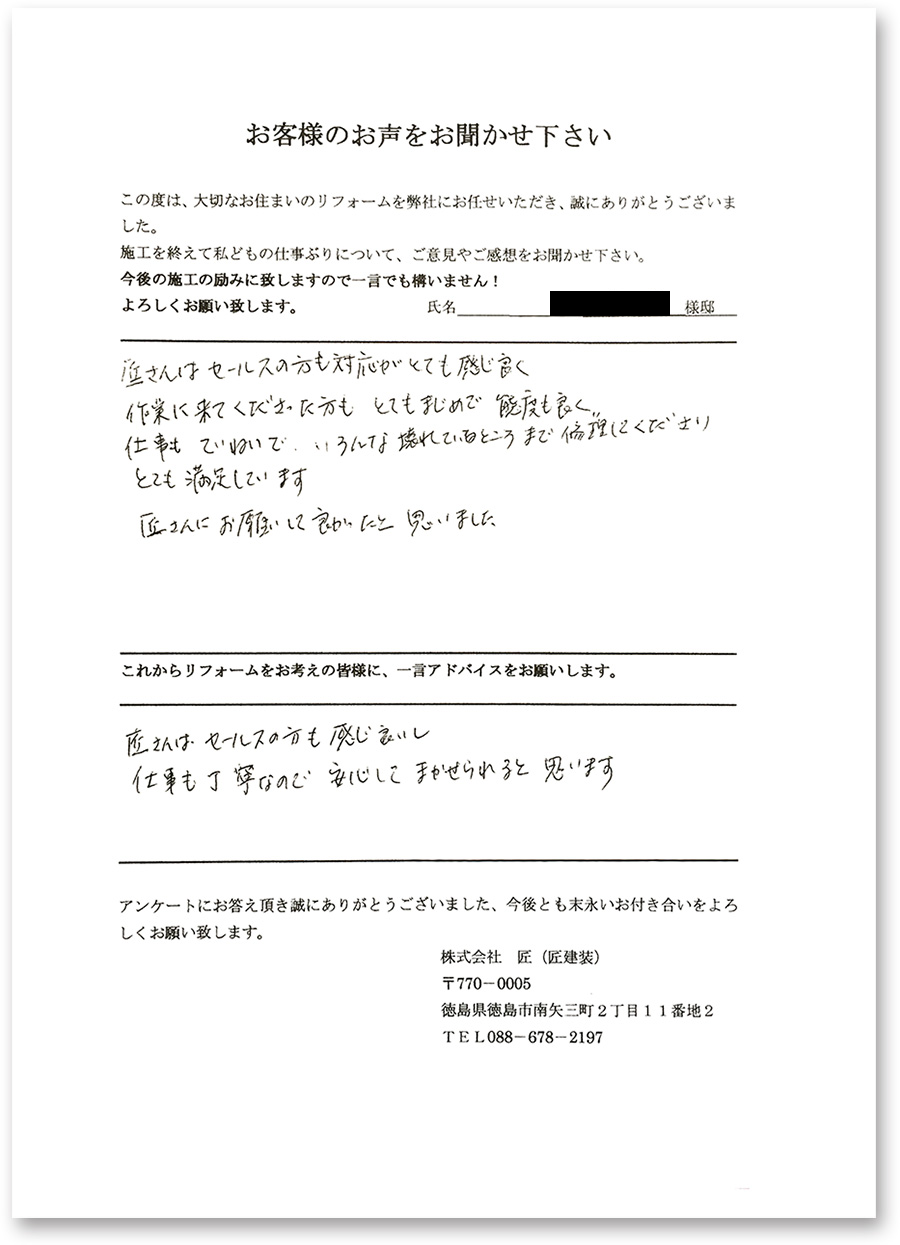 お客様のお声をお聞かせ下さい
この度は、大切なお住まいのリフォームを弊社にお任せいただき、誠にありがとうございま
した。
施工を終えて私どもの仕事ぶりについて、ご意見やご感想をお聞かせ下さい。
今後の施工の励みに致しますので一言でも構いません！
よろしくお願い致します。 氏名 様邸
匠さんは セールスの方も対応がとても感じ良く
作業に来てくださった方も とてもまじめで 態度も良く、
仕事も ていねいで、いろんな壊れているところまで修理してくださり
とても満足しています
匠さんにお願いして良かったと 思いました
これからリフォームをお考えの皆様に、一言アドバイスをお願いします。
匠さんは セールスの方も感じ良いし
仕事も丁寧なので 安心して まかせられると 思います
アンケートにお答え頂き誠にありがとうございました、今後とも末永いお付き合いをよろ
しくお願い致します。
株式会社　匠（匠建装）
〒770－0005
徳島県徳島市南矢三町２丁目１１番地２
ＴＥＬ088－678－2197